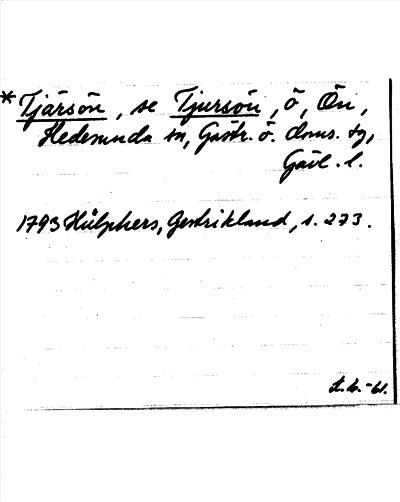 *Tjärsön, se Tjursön, ö, Ön,
Hedesunda sn, Gästr. ö. doms. tg,
Gävl. l.
1793 Hülphers, Gestrikland, s. 273.